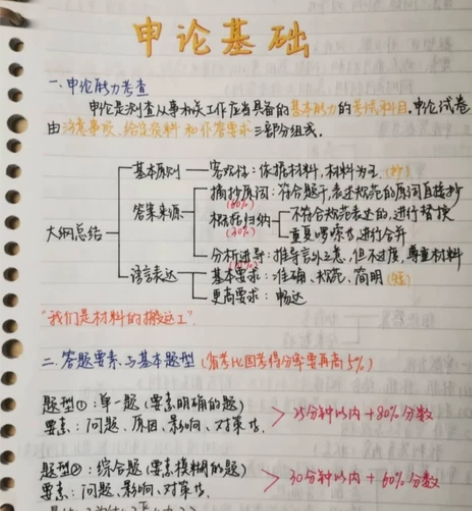 申论基础
一、申论能力考查
申论是测查从事机关工作应当具备的基本能力的考试科目,申论试卷
由注意事项、给定资料和作答要求三部分组成。
大纲总结
基本原则 客观性:依据材料,材料为王.(抄)
答案来源 摘抄原词:符合题干,表述规范的原词直接抄
(60%)
概括归纳 不符合规范表达的,进行替换
(30%) 重复啰嗦者,进行合并
分析推导:推导言外之意,但不过度,尊重材料
语言表达 基本要求:准确、规范、简明
更高要求:畅达
"我们是材料的搬运工".
二、答题要素与基本题型(省考比国考得分率要再高5%)
题型①:单一题(要素明确的题)
要素:问题、原因、影响、对策等. > 25分钟以内+80%分数
题型②:综合题(要素模糊的题)
要素:问题、影响、对策等. > 30分钟以内+60%分数